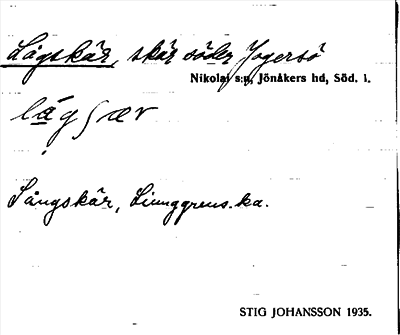 Lågskär, skär söder Jogersö
Nikolai s:n, Jönåkers hd, Söd. l.
lágʃær
Långskär, Ljunggrens ka.
STIG JOHANSSON 1935.